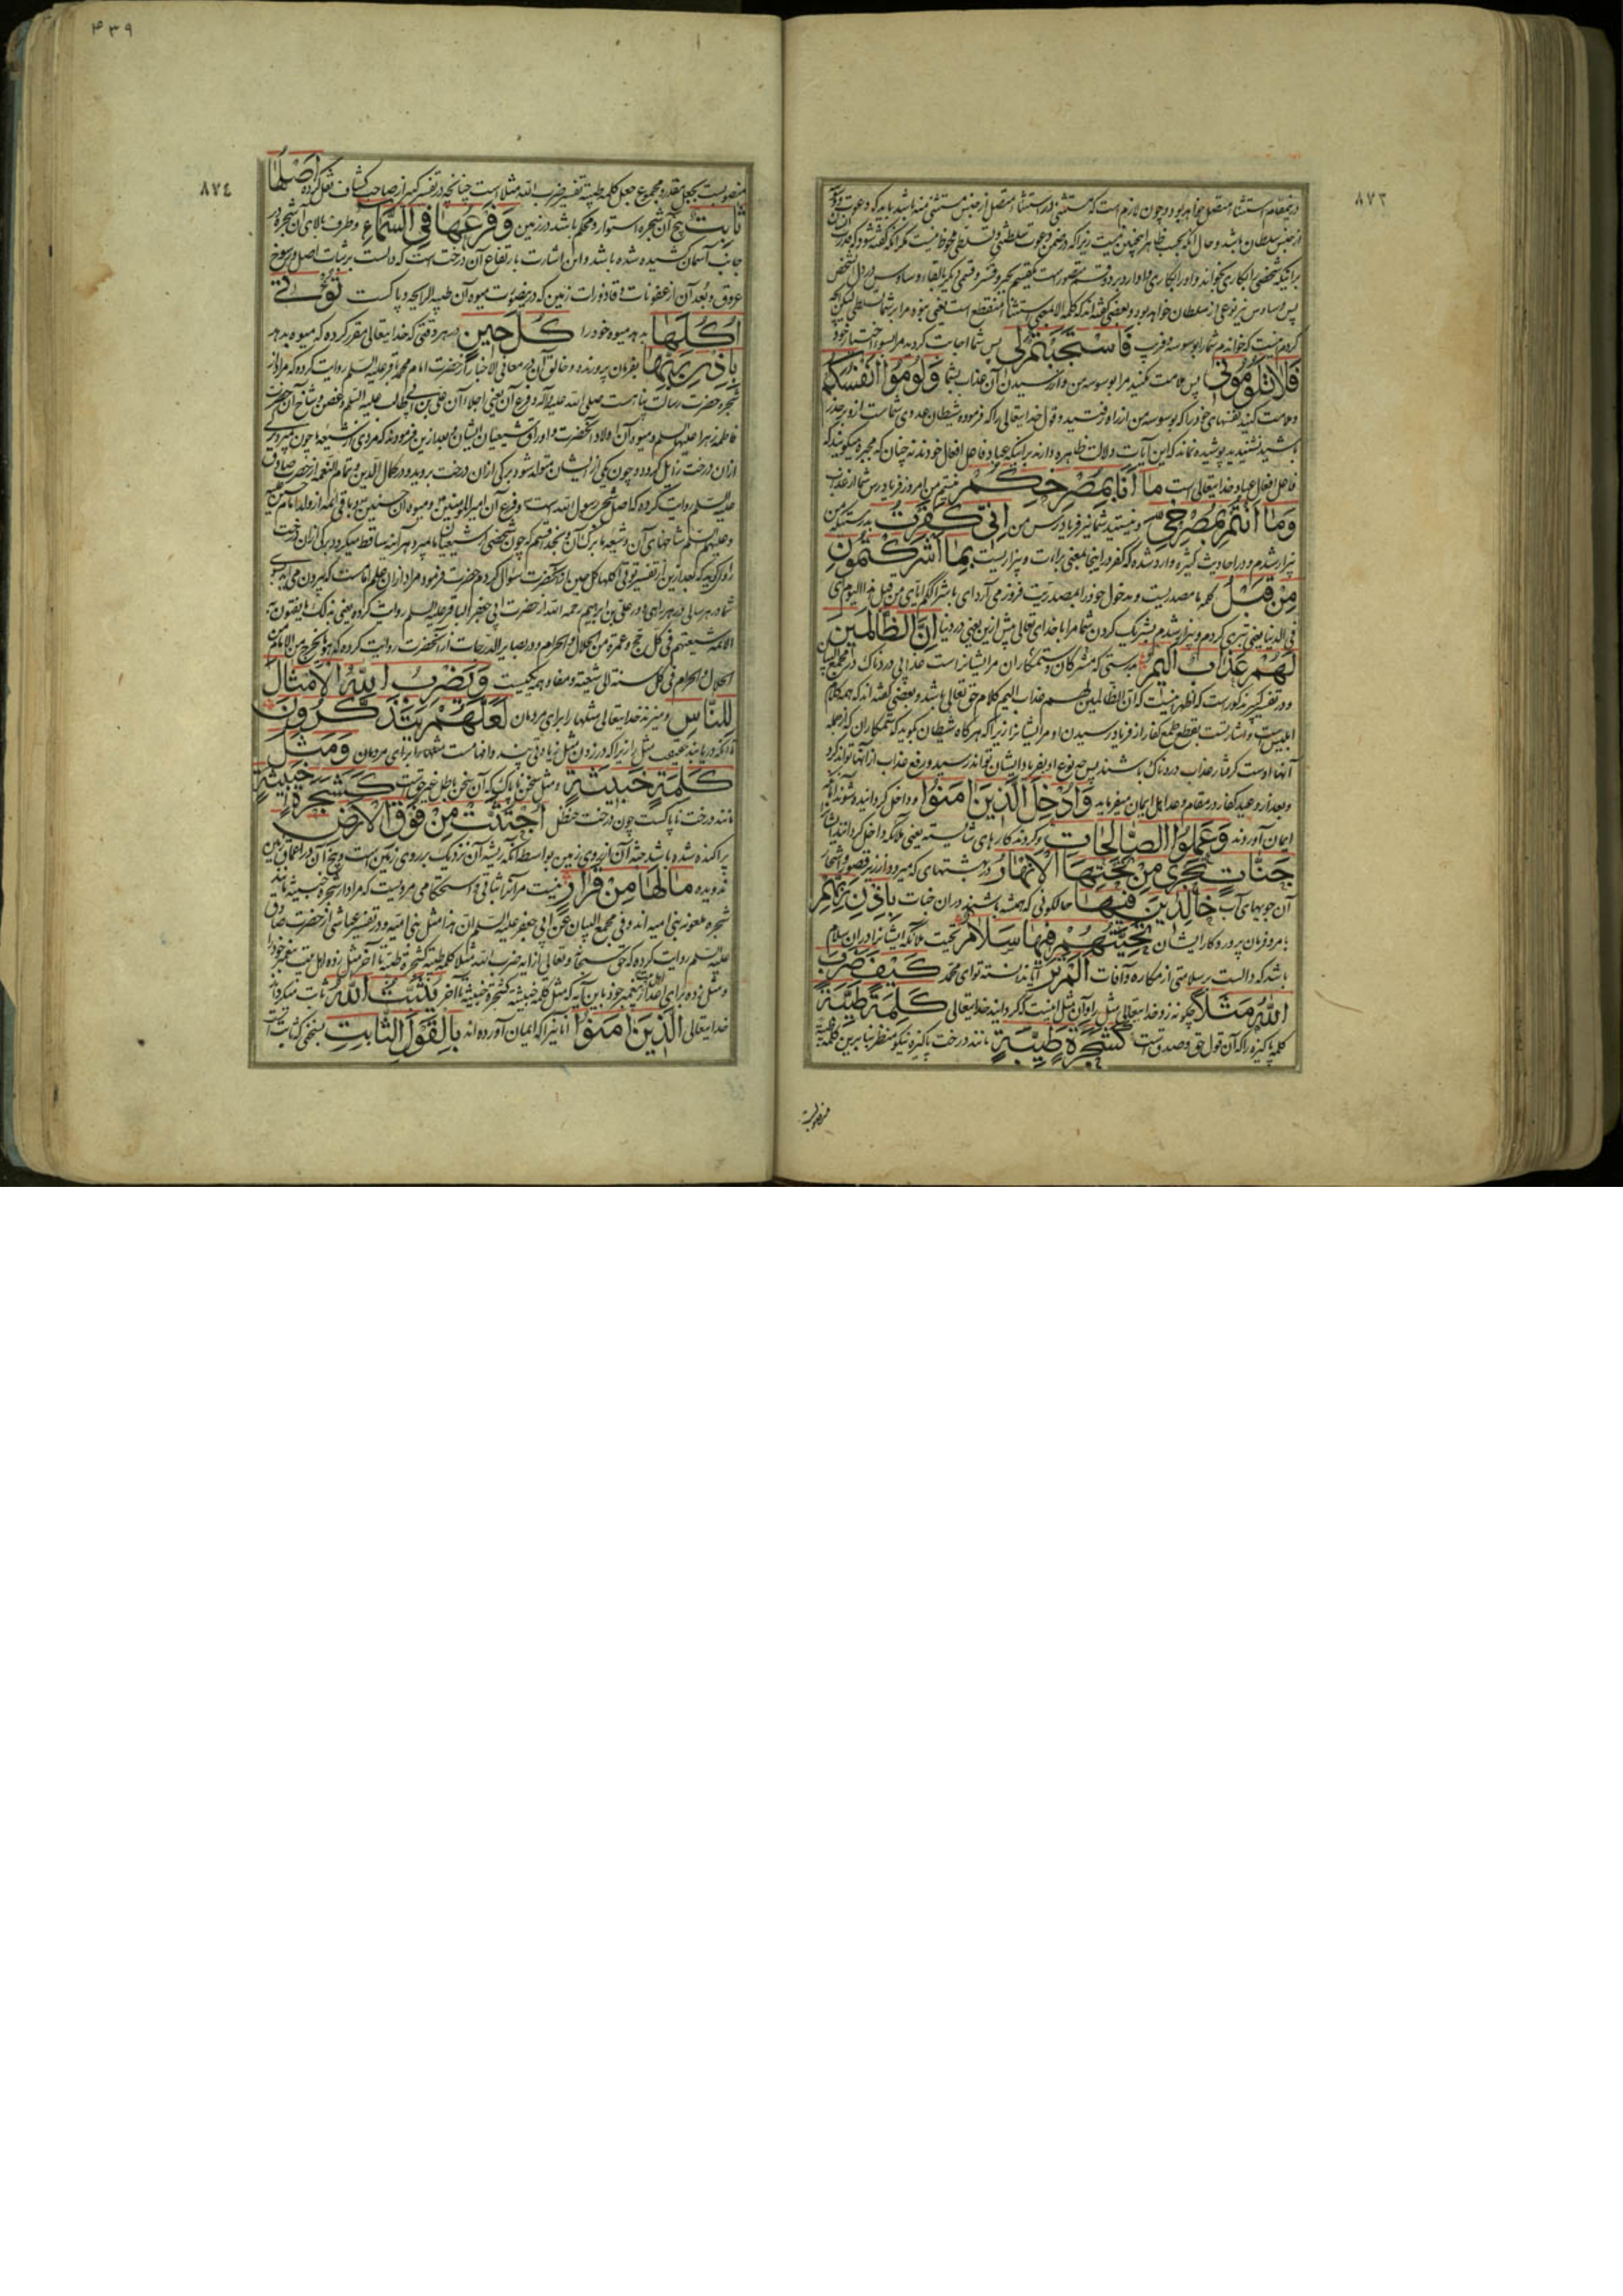 ۸۷۳
در مقام استثناء متصل خواهد بود و چون لازم است که مستثنی در استثناء متصل از جنس مستثنی منه باشد باید که دعوت
از جنس سلطان باشد و حال آنکه بحسب ظاهر چنین نیست زیرا که در ضمن دعوت سلطنتی و تسلطی ملحوظ نیست مگر آنکه گفته شود که
براینکه شخصی را بکاری بخواند و او را بکاری وادارد بر دو قسم متصور است یک قسم بجبر و قسر و قسمی دیگر بالقاء وساوس در دل شخص
پس وساوس نیز نوعی از سلطان خواهد بود و بعضی گفته‌اند که کلمه الا بمعنی استثناء منقطع است یعنی نبوده مرا بر شما تسلطی لیکن آنچه
کردم اینست که خواندم شما را بوسوسه و فریب فَاسْتَجَبْتُمْ لِي پس شما اجابت کردید مرا بسوء اختیار خود
فَلَا تَلُومُونِي پس ملامت مکنید مرا بوسوسه من و از رسیدن آن عذاب بشما وَلُومُوا أَنْفُسَكُمْ
و ملامت کنید نفسهای خود را که بوسوسه من از راه رفتید و قول خدایتعالی را که فرموده شیطان عدوی شماست از و بر حذر
باشید نشنیدید پوشیده نماند که این آیات دلالت ظاهره دارند براینکه عباد فاعل افعال خودند نه چنان که مجبره میگویند که
فاعل افعال عباد خدایتعالی است مَا أَنَا بِمُصْرِخِكُمْ نیستم من امروز فریادرس شما از عذاب
وَمَا أَنْتُمْ بِمُصْرِخِيَّ و نیستید شما نیز فریادرس من إِنِّي كَفَرْتُ بدرستیکه من
بیزار شدم و در احادیث کثیره وارد شده که کفر در اینجا بمعنی برائت و بیزاریست بِمَا أَشْرَكْتُمُونِ
مِنْ قَبْلُ کلمه ما مصدریست و مدخول خود را بمصدریت فرو می‌آرد ای باشراککم ایای من قبل هذا الیوم ای
فی الدنیا یعنی تبری کردم و بیزار شدم بشریک کردن شما مرا با خدای تعالی پیش ازین یعنی در دنیا إِنَّ الظَّالِمِينَ
لَهُمْ عَذَابٌ أَلِيمٌ بدرستی که مشرکان و ستمکاران مر ایشانراست عذابی دردناک در مجمع البیان
و در تفسیر کبیر مذکور است که اظهر اینست که ان الظالمین لهم عذاب الیم کلام حق تعالی باشد و بعضی گفته‌اند که همه کلام
ابلیس است و اشارتست بقطع طمع کفار از فریاد رسیدن او مر ایشانرا زیرا که هرگاه شیطان بگوید که ستمکاران که از جمله
آنها اوست گرفتار عذاب دردناک باشند پس چه نوع او بفریاد ایشان تواند رسید و رفع عذاب از آنها تواند کرد
و بعد از وعید کفار در مقام وعد اهل ایمان میفرماید وَأُدْخِلَ الَّذِينَ آمَنُوا و داخل گردانیده شوند آنانکه
ایمان آوردند وَعَمِلُوا الصَّالِحَاتِ و کردند کارهای شایسته یعنی ملائکه داخل گردانند ایشانرا
جَنَّاتٍ تَجْرِي مِنْ تَحْتِهَا الْأَنْهَارُ در بهشتهای که میرود از زیر قصور و اشجار
آن جویهای آب خَالِدِينَ فِيهَا حالکونی که همیشه باشند در آن جنات بِإِذْنِ رَبِّهِمْ
بامر و فرمان پروردگار ایشان تَحِيَّتُهُمْ فِيهَا سَلَامٌ تحیت ملائکه ایشانرا در آن سلام
باشد که دالست بر سلامتی از مکاره و آفات أَلَمْ تَرَ آیا ندانسته توای محمد كَيْفَ ضَرَبَ
اللَّهُ مَثَلًا چگونه زد خدایتعالی مثل را و آن مثل اینست که گردانید خدایتعالی كَلِمَةً طَيِّبَةً
کلمه پاکیزه را که آن قول حق و صدق است كَشَجَرَةٍ طَيِّبَةٍ مانند درخت پاکیزه نیکو منظر بنابرین کلمة طیبة
منصوبست
۴۳۹
۸۷٤
منصوبست بجعل مقدر و مجموع جعل کلمة طیبة تفسیر ضرب الله مثلا است چنانچه در تفسیر کبیر از صاحب کشاف نقل کرده أَصْلُهَا
ثَابِتٌ بیخ آن شجره استوار و محکم باشد در زمین وَفَرْعُهَا فِي السَّمَاءِ و طرف بالای آن شجره در
جانب آسمان کشیده شده باشد و این اشارت بارتفاع آن درخت است که دالست بر ثبات اصل و رسوخ
عروق و بعد آن از عفونات و قاذورات زمین که در ینصورت میوه آن طیبة الرایحه و پاکست تُؤْتِي
أُكُلَهَا بدهد میوه خود را كُلَّ حِينٍ در هر وقتی که خدایتعالی مقرر کرده که میوه بدهد
بِإِذْنِ رَبِّهَا بفرمان پرورنده و خالق آن در معانی الاخبار از حضرت امام محمد باقر علیه السلم روایت کرده که مراد از
شجره حضرت رسالت پناهست صلی الله علیه و آله و فرع آن یعنی اجلاء آن علی بن ابی طالب علیه السلم و غصن و شاخ آن حضرت
فاطمه زهرا علیها السلم و میوه آن اولاد آنحضرت و اوراق شیعیان ایشان و بعد ازین فرمودند که مردی از شیعه ما چون میرد برگی
از آن درخت زایل گردد و چون یکی از ایشان متولد شود برگی از آن درخت بروید و در کمال الدین و تمام النعمه از حضرت صادق
علیه السلم روایت کرده که اصل شجره رسول الله است و فرع آن امیرالمؤمنین و میوه آن حسنین و باقی ائمه از ولد امام حسین
و علیهم السلم شاخهای آن و شیعه ما برگ آن و بخدا قسم که چون شخصی از شیعیان ما میرد هر آینه ساقط میگردد برگی از آن درخت
راوی گوید که بعد ازین از تفسیر تؤتی اکلها کل حین باذن ربها از آنحضرت سؤال کردم حضرت فرمود مراد از آن علم امامست که بیرون می‌آید بسوی
شما در هر سالی و در علی بن ابراهیم رحمه الله از حضرت ابی جعفر الباقر علیه السلم روایت کرده یعنی بذلک ما یفتون به
الائمة شیعتهم فی کل حج و عمرة من الحلال و الحرام و در بصایر الدرجات از آنحضرت روایت کرده که هو ما یخرج من الامام من
الحلال و الحرام فی کل سنة الی شیعته و مفاد همه یکیست وَيَضْرِبُ اللَّهُ الْأَمْثَالَ
لِلنَّاسِ و میزند خدایتعالی مثلها را برای مردمان لَعَلَّهُمْ يَتَذَكَّرُونَ
تا آنکه دریابند حقیقت مثل را زیرا که در زدن مثل زیادتی پند و افهامست مثلها را برای مردمان وَمَثَلُ
كَلِمَةٍ خَبِيثَةٍ و مثل سخن ناپاک که آن سخن باطل غیر حقست كَشَجَرَةٍ خَبِيثَةٍ
مانند درخت ناپاکست چون درخت حنظل اجْتُثَّتْ مِنْ فَوْقِ الْأَرْضِ
پراکنده شده باشد جثه آن از روی زمین بواسطه آنکه ریشه آن نزدیک بر روی زمین است و بیخ آن در اعماق زمین
ندویده مَا لَهَا مِنْ قَرَارٍ نیست مر آنرا ثباتی و استحکامی مرویست که مراد از شجره خبیثه مانند
شجره ملعونه بنی امیه‌اند و فی مجمع البیان عن ابی جعفر علیه السلم ان هذا مثل بنی امیه و در تفسیر عیاشی از حضرت صادق
علیه السلم روایت کرده که حق سبحانه و تعالی از آیه ضرب الله مثلا کلمة طیبة کشجرة طیبة تا آخر مثل زده اهل بیت پیغمبر خود را
و مثل زده برای اعدای پیغمبر خود باین آیه که مثل کلمة خبیثة کشجرة خبیثة تا آخر يُثَبِّتُ اللَّهُ ثابت میگرداند
خدایتعالی الَّذِينَ آمَنُوا آنانیرا که ایمان آورده‌اند بِالْقَوْلِ الثَّابِتِ بسخنی که ثابت است